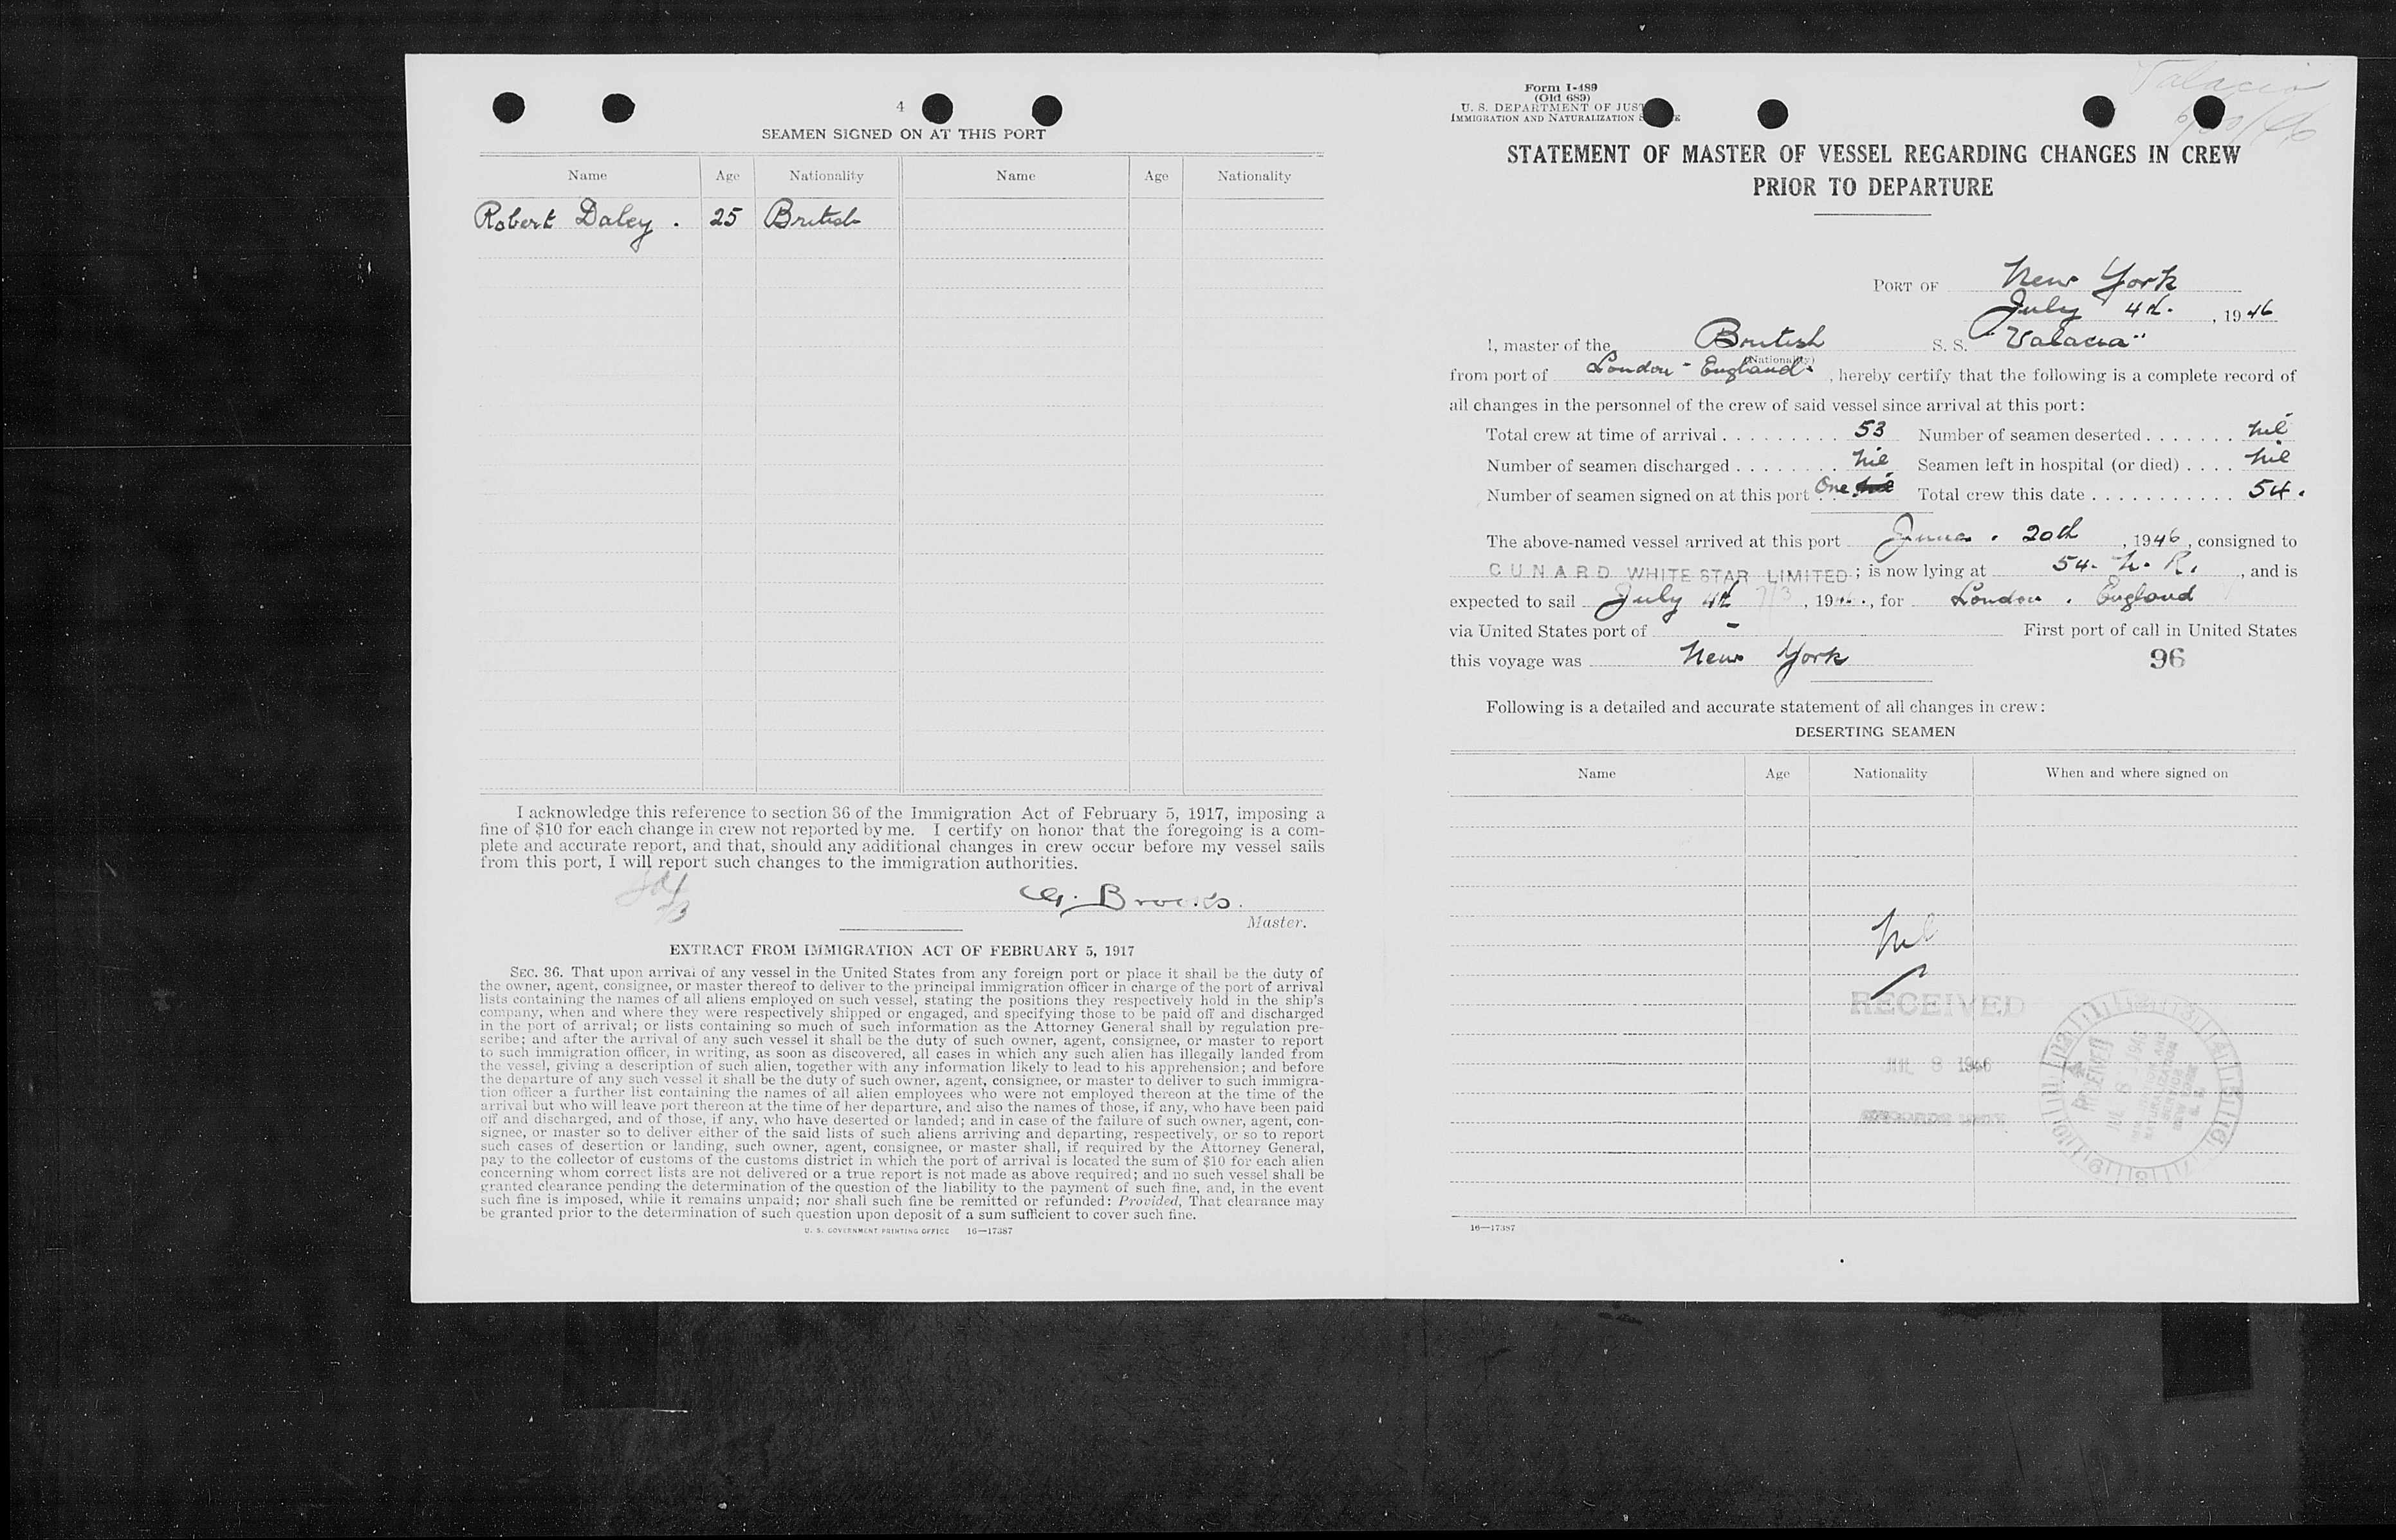 4
SEAMEN SIGNED ON AT THIS PORT
Name Age Nationality Name Age Nationality
Robert Daley. 25 British
I acknowledge this reference to section 36 of the Immigration Act of February 5, 1917, imposing a
fine of $10 for each change in crew not reported by me. I certify on honor that the foregoing is a com-
plete and accurate report, and that, should any additional changes in crew occur before my vessel sails
from this port, I will report such changes to the immigration authorities.
G. Brooks.
Master.
EXTRACT FROM IMMIGRATION ACT OF FEBRUARY 5, 1917
SEC. 36. That upon arrival of any vessel in the United States from any foreign port or place it shall be the duty of
the owner, agent, consignee, or master thereof to deliver to the principal immigration officer in charge of the port of arrival
lists containing the names of all aliens employed on such vessel, stating the positions they respectively hold in the ship's
company, when and where they were respectively shipped or engaged, and specifying those to be paid off and discharged
in the port of arrival; or lists containing so much of such information as the Attorney General shall by regulation pre-
scribe; and after the arrival of any such vessel it shall be the duty of such owner, agent, consignee, or master to report
to such immigration officer, in writing, as soon as discovered, all cases in which any such alien has illegally landed from
the vessel, giving a description of such alien, together with any information likely to lead to his apprehension; and before
the departure of any such vessel it shall be the duty of such owner, agent, consignee, or master to deliver to such immigra-
tion officer a further list containing the names of all alien employees who were not employed thereon at the time of the
arrival but who will leave port thereon at the time of her departure, and also the names of those, if any, who have been paid
off and discharged, and of those, if any, who have deserted or landed; and in case of the failure of such owner, agent, con-
signee, or master so to deliver either of the said lists of such aliens arriving and departing, respectively, or so to report
such cases of desertion or landing, such owner, agent, consignee, or master shall, if required by the Attorney General,
pay to the collector of customs of the customs district in which the port of arrival is located the sum of $10 for each alien
concerning whom correct lists are not delivered or a true report is not made as above required; and no such vessel shall be
granted clearance pending the determination of the question of the liability to the payment of such fine, and, in the event
such fine is imposed, while it remains unpaid; nor shall such fine be remitted or refunded: Provided, That clearance may
be granted prior to the determination of such question upon deposit of a sum sufficient to cover such fine.
U. S. GOVERNMENT PRINTING OFFICE 16—17387
Valacia
Form I-489
(Old 689)
U. S. DEPARTMENT OF JUST
IMMIGRATION AND NATURALIZATION S
STATEMENT OF MASTER OF VESSEL REGARDING CHANGES IN CREW
PRIOR TO DEPARTURE
PORT OF New York
July 4th. , 1946
I, master of the British S. S. "Valacia"
(Nationality)
from port of London - England. , hereby certify that the following is a complete record of
all changes in the personnel of the crew of said vessel since arrival at this port:
Total crew at time of arrival . . . . . . . . . 53 Number of seamen deserted . . . . . . . nil
Number of seamen discharged . . . . . . . . nil Seamen left in hospital (or died) . . . . nil
Number of seamen signed on at this port One nil Total crew this date . . . . . . . . . . . . 54.
The above-named vessel arrived at this port June. 20th , 1946, consigned to
CUNARD WHITE STAR LIMITED; is now lying at 54. N. R. , and is
expected to sail July 4th 7/3 , 19 , for London. England
via United States port of - First port of call in United States
this voyage was New York 96
Following is a detailed and accurate statement of all changes in crew:
DESERTING SEAMEN
Name Age Nationality When and where signed on
nil
RECEIVED
JUL 8 1946
RECEIVED
JUL 8 1946
16—17387